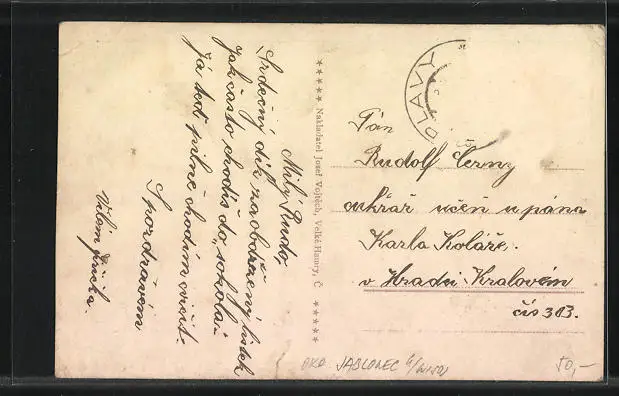 Milý Rudo,
Srdečný dík za obdržený lístek
jak často chodíš do „sokola“
já teď pilně chodím cvičit.
S pozdravem
***** Nakladatel Josef Vojtěch, Velké Hamry, Č *****
OLAVY
Pán
Rudolf Černý
cukrář učeň u pána
Karla Koláře.
v Hradci Kralovém
čís 313.
OKO. JABLONEC
50,-